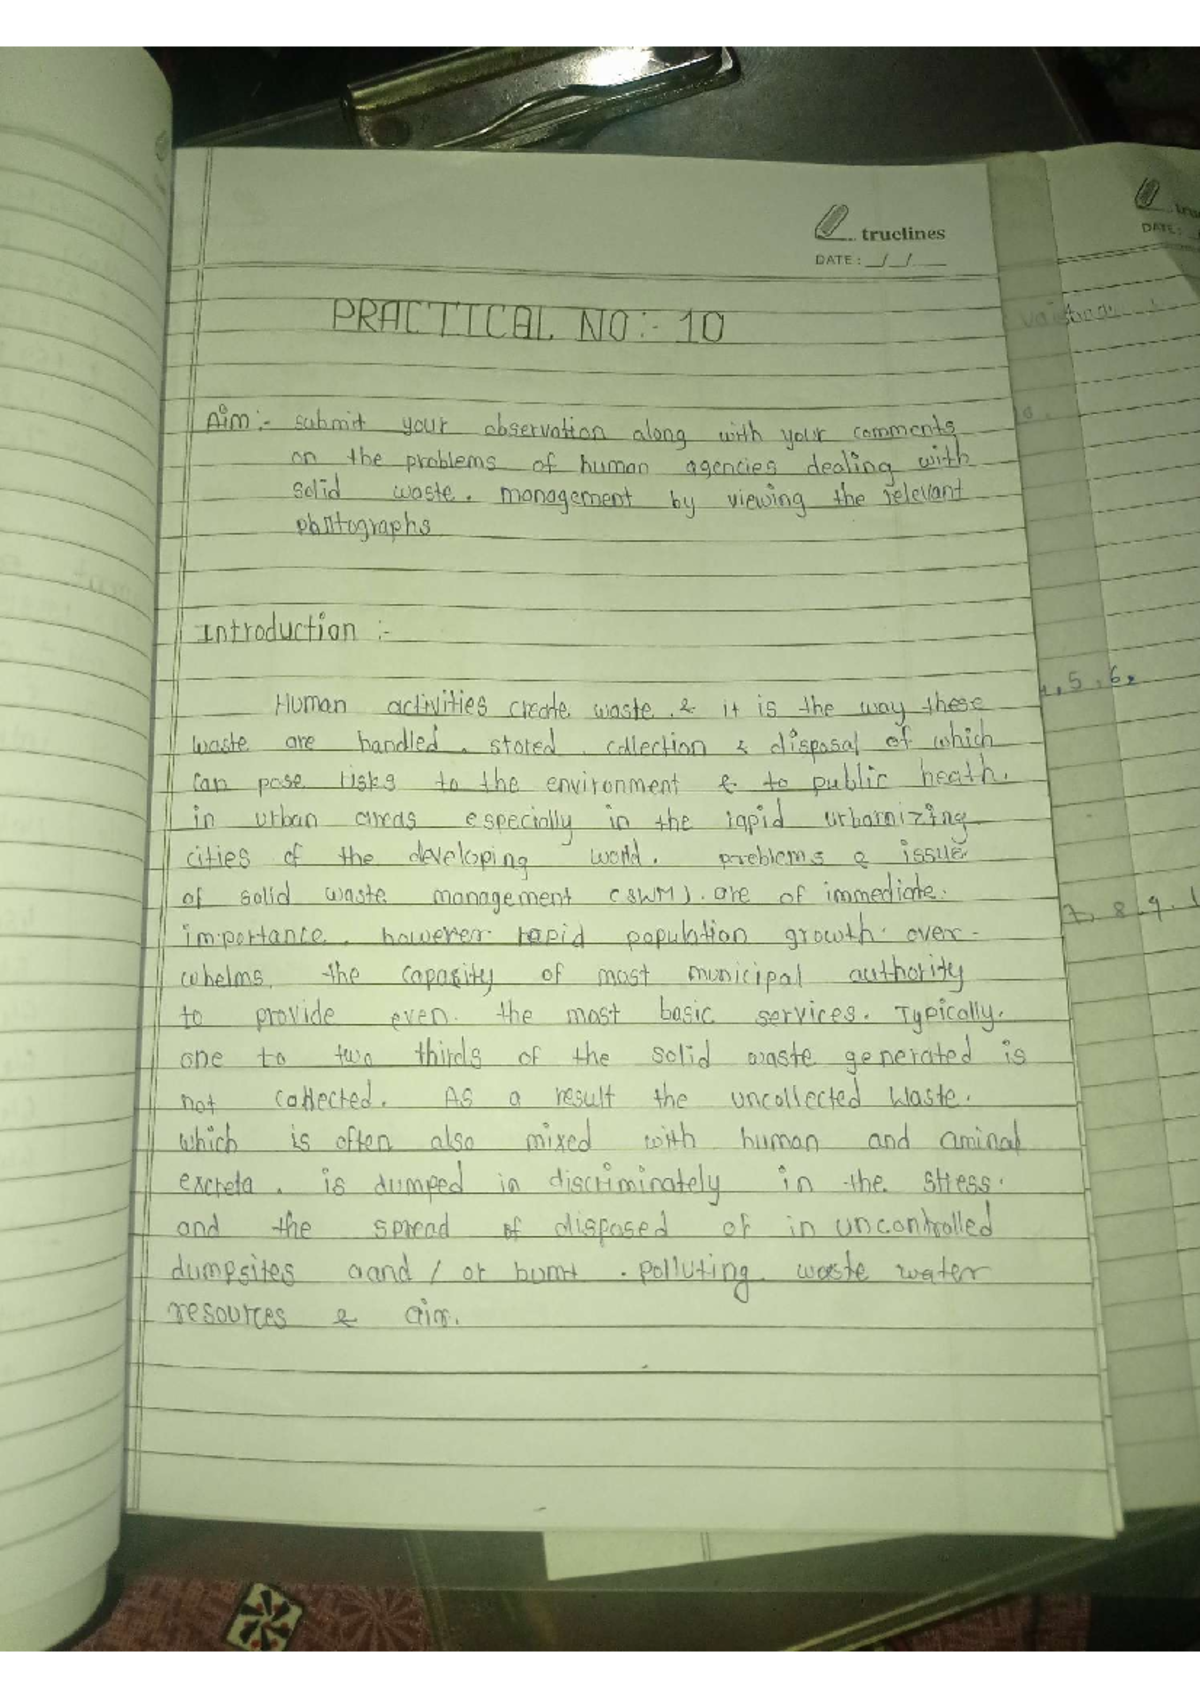 truelines
DATE: __/__/____
PRACTICAL NO:- 10
Aim:- submit your observation along with your comments
on the problems of human agencies dealing with
solid waste. management by viewing the relevant
photographs
Introduction :-
Human activities create waste. & it is the way these
waste are handled. stored. collection & disposal of which
can pose risks to the environment & to public heath.
in urban areas especially in the rapid urbarnizing
cities of the developing world. problems & issue
of solid waste management (SWM). are of immediate.
importance. however rapid population growth over-
whelms. the capasity of most municipal authority
to provide even. the most basic services. Typically.
one to two thirds of the solid waste generated is
not collected. As a result the uncollected waste.
which is often also mixed with human and aminal
excreta. is dumped in discriminately in the stress.
and the spread of disposed of in uncontrolled
dumpsites aand / or burnt. polluting. waste water
resources & air.
DATE:
5. 6,
7. 8. 9.